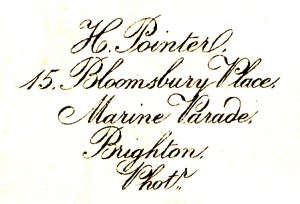 H. Pointer,
15. Bloomsbury Place.
Marine Parade.
Brighton.
Photr.